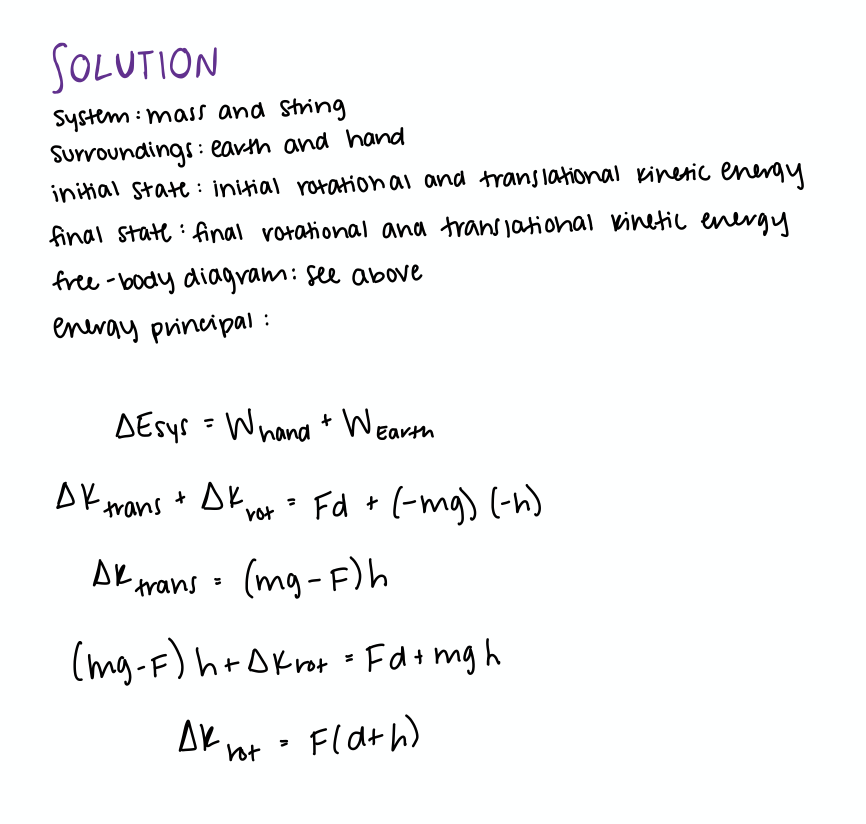 SOLUTION
system: mass and string
surroundings: earth and hand
initial state: initial rotational and translational kinetic energy
final state: final rotational and translational kinetic energy
free-body diagram: see above
energy principal:
ΔEsys = Whand + WEarth
ΔKtrans + ΔKrot = Fd + (-mg)(-h)
ΔKtrans = (mg-F)h
(mg-F)h + ΔKrot = Fd + mgh
ΔKrot = F(d+h)